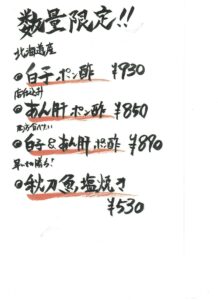 数量限定!!
北海道産
白子ポン酢 ¥930
あん肝ポン酢 ¥850
白子&あん肝ポン酢 ¥890
早い者勝ち!
秋刀魚塩焼き
¥530